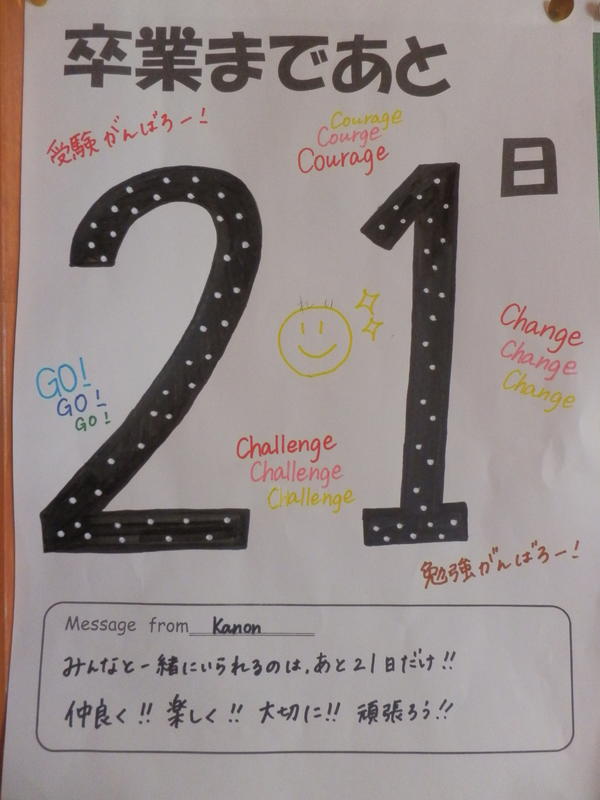 卒業まであと
受験がんばろー!
Courage
Courge
Courage
21
日
Change
Change
Change
GO!
GO!
GO!
Challenge
Challenge
Challenge
勉強がんばろー!
Message from Kanon
みんなと一緒にいられるのは、あと21日だけ!!
仲良く!! 楽しく!! 大切に!! 頑張ろう!!